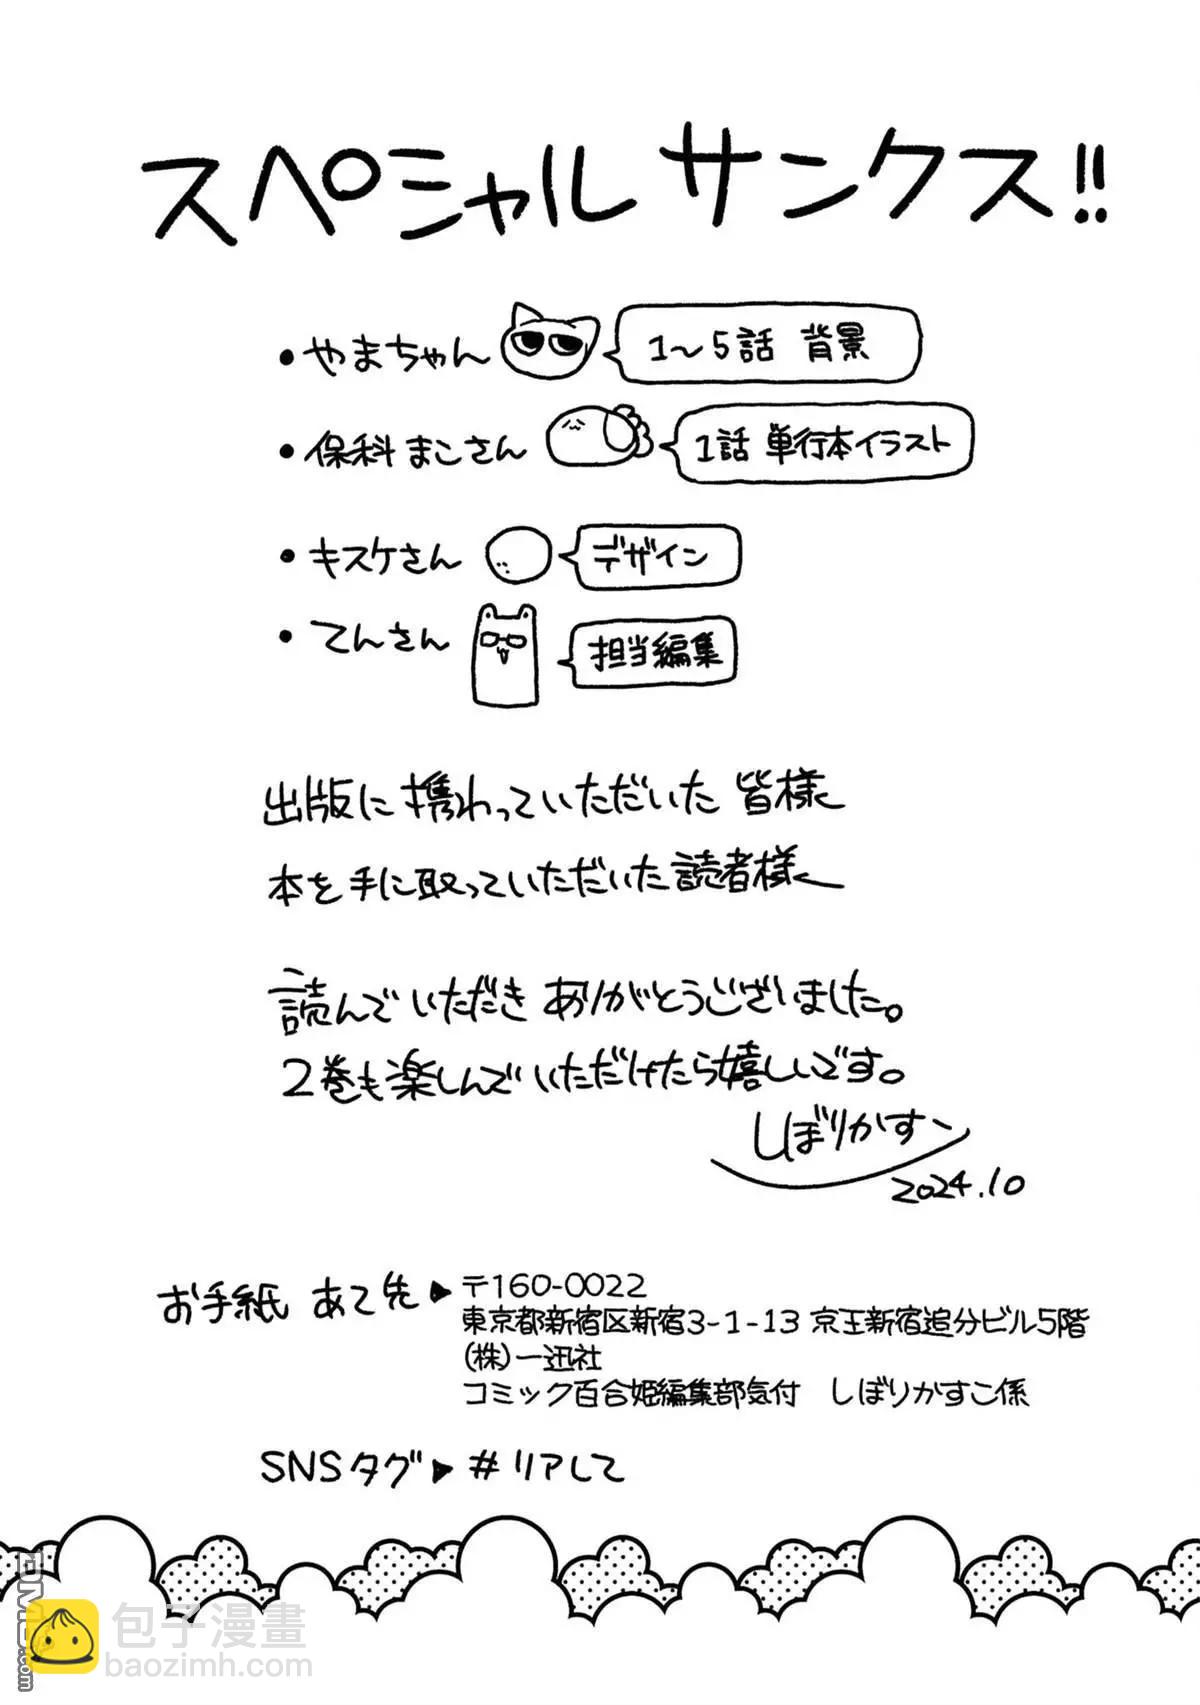 スペシャルサンクス!!
・やまちゃん 1〜5話 背景
・保科まこさん 1話 単行本イラスト
・キスケさん デザイン
・てんさん 担当編集
出版に携わっていただいた 皆様
本を手に取っていただいた読者様
読んでいただき ありがとうございました。
2巻も楽しんでいただけたら嬉しいです。
しぼりかすこ
2024.10
お手紙 あて先▶ 〒160-0022
東京都新宿区新宿3-1-13 京王新宿追分ビル5階
(株)一迅社
コミック百合姫編集部気付 しぼりかすこ係
SNSタグ▶ #リアして
包子漫畫
baozimh.com